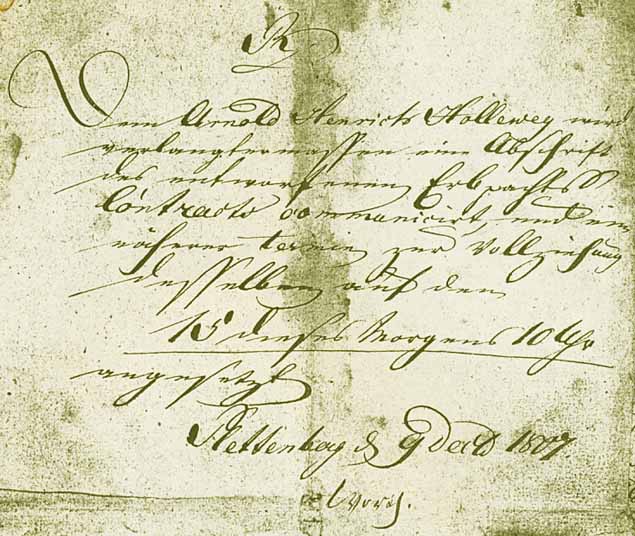 Dem Arnold Henrich Hollewey wird
verlangtermassen eine Abschrift
des entworfenen Erbpachts
Contracts communicirt, und ein
näherer termin zur Vollziehung
desselben auf den
15 dieses Morgens 10 Uhr
angesetzt
Plettenberg d 9 Dec 1807